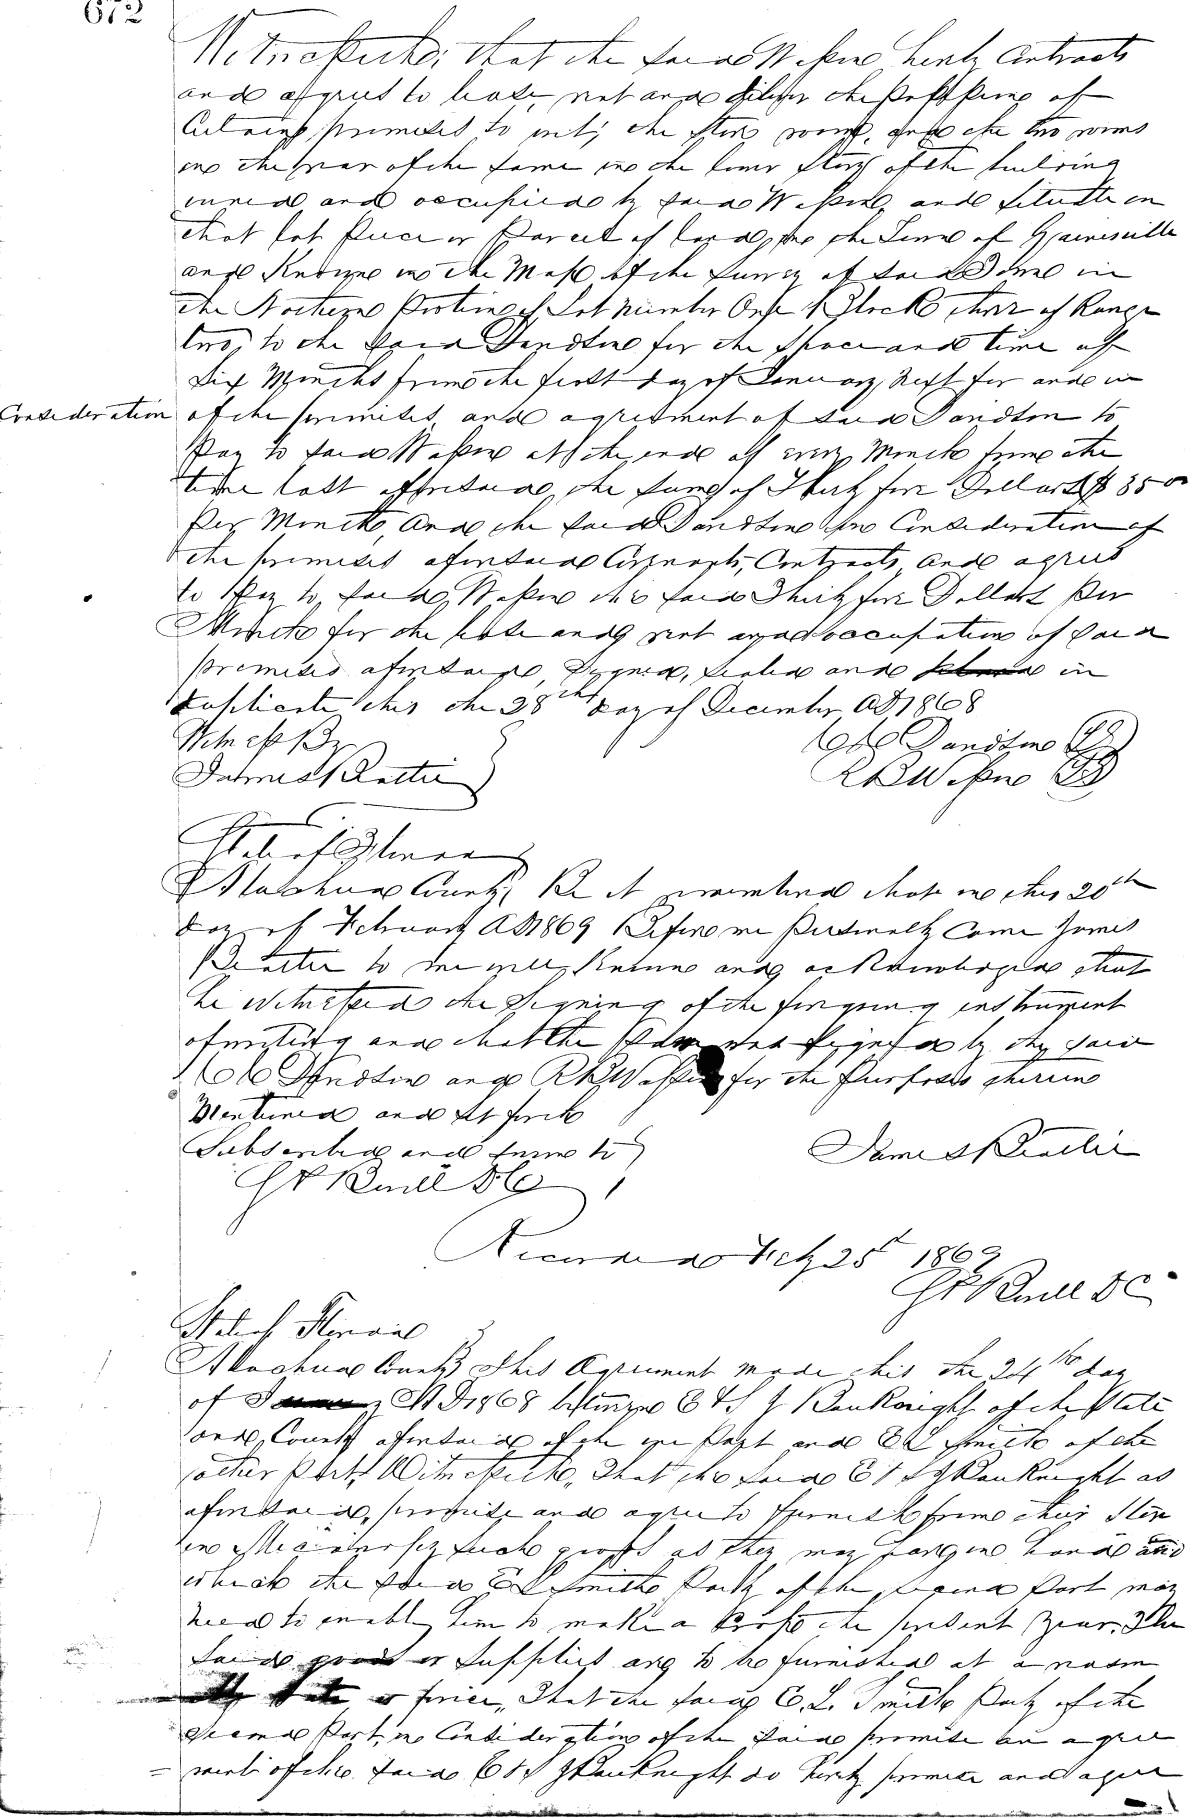 672
Witnesseth; that the said Wesson hereby contracts
and agrees to lease, rent and deliver the possession of
Certain premises to wit; the store room, and the two rooms
in the rear of the same in the lower story of the building
owned and occupied by said Wesson, and situate on
that lot Piece or Parcel of land, in the Town of Gainesville
and Known in the Map of the Survey of said Town in
the Northern Portion of Lot number One Block three of Range
two, to the said Davidson for the space and time of
Six Months from the first day of January, next for and in
Consideration of the premises, and agreement of said Davidson to
Pay to said Wesson at the end of every Month from the
time last aforesaid, the sum of Thirty five Dollars $35 00
Per Month, And the said Davidson in Consideration of
the premises aforesaid Covenants, Contracts, and agrees
to Pay to said Wesson the said Thirty five Dollars Per
Month for the lease and rent and occupation of said
premises aforesaid, Signed, sealed and in
duplicate this the 28th day of December AD 1868
Witness By
James Beattie
Davidson
R B Wesson
State of Florida
Alachua County, Be it remembered that on this 20th
day of February AD 1869 Before me Personally Came James
Beattie to me well Known and acknowledged that
he witnessed the Signing of the foregoing instrument
of writing and that the same was signed by the said
Davidson and R B Wesson for the Purposes therein
Mentioned and set forth
Subscribed and sworn to
James Beattie
DC
Recorded Feby 25th 1869
DC
State of Florida
Alachua County This Agreement made this the 24th day
of AD 1868 between E & S J BauKnight of the State
and County aforesaid of the one Part and E L Smith of the
other Part, Witnesseth, That the said E & S J BauKnight as
aforesaid, promise and agree to furnish from their Store
in Micanopy such goods as they may have on hand and
which the said E L Smith Party of the second Part may
need to enable him to make a Crop the present year. The
said goods or supplies are to be furnished at a reason
rate or price, That the said E. L. Smith Party of the
second Part, in Consideration of the said promise and agree
ment of the said E & S J BauKnight do hereby promise and agree